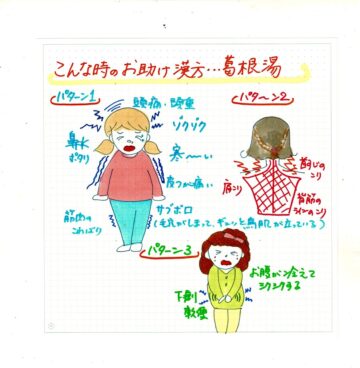 こんな時のお助け漢方…葛根湯
パターン1
頭痛・頭重
ゾクゾク
鼻水
ポタリ
寒〜〜い
皮フが痛い
筋肉の
こわばり
サブボロ
(毛孔がしまって、ギュッと鳥肌が立っている)
パターン2
首すじの
こり
肩こり
背筋の
ラインのこり
パターン3
お腹が冷えて
シクシクする
下痢
軟便